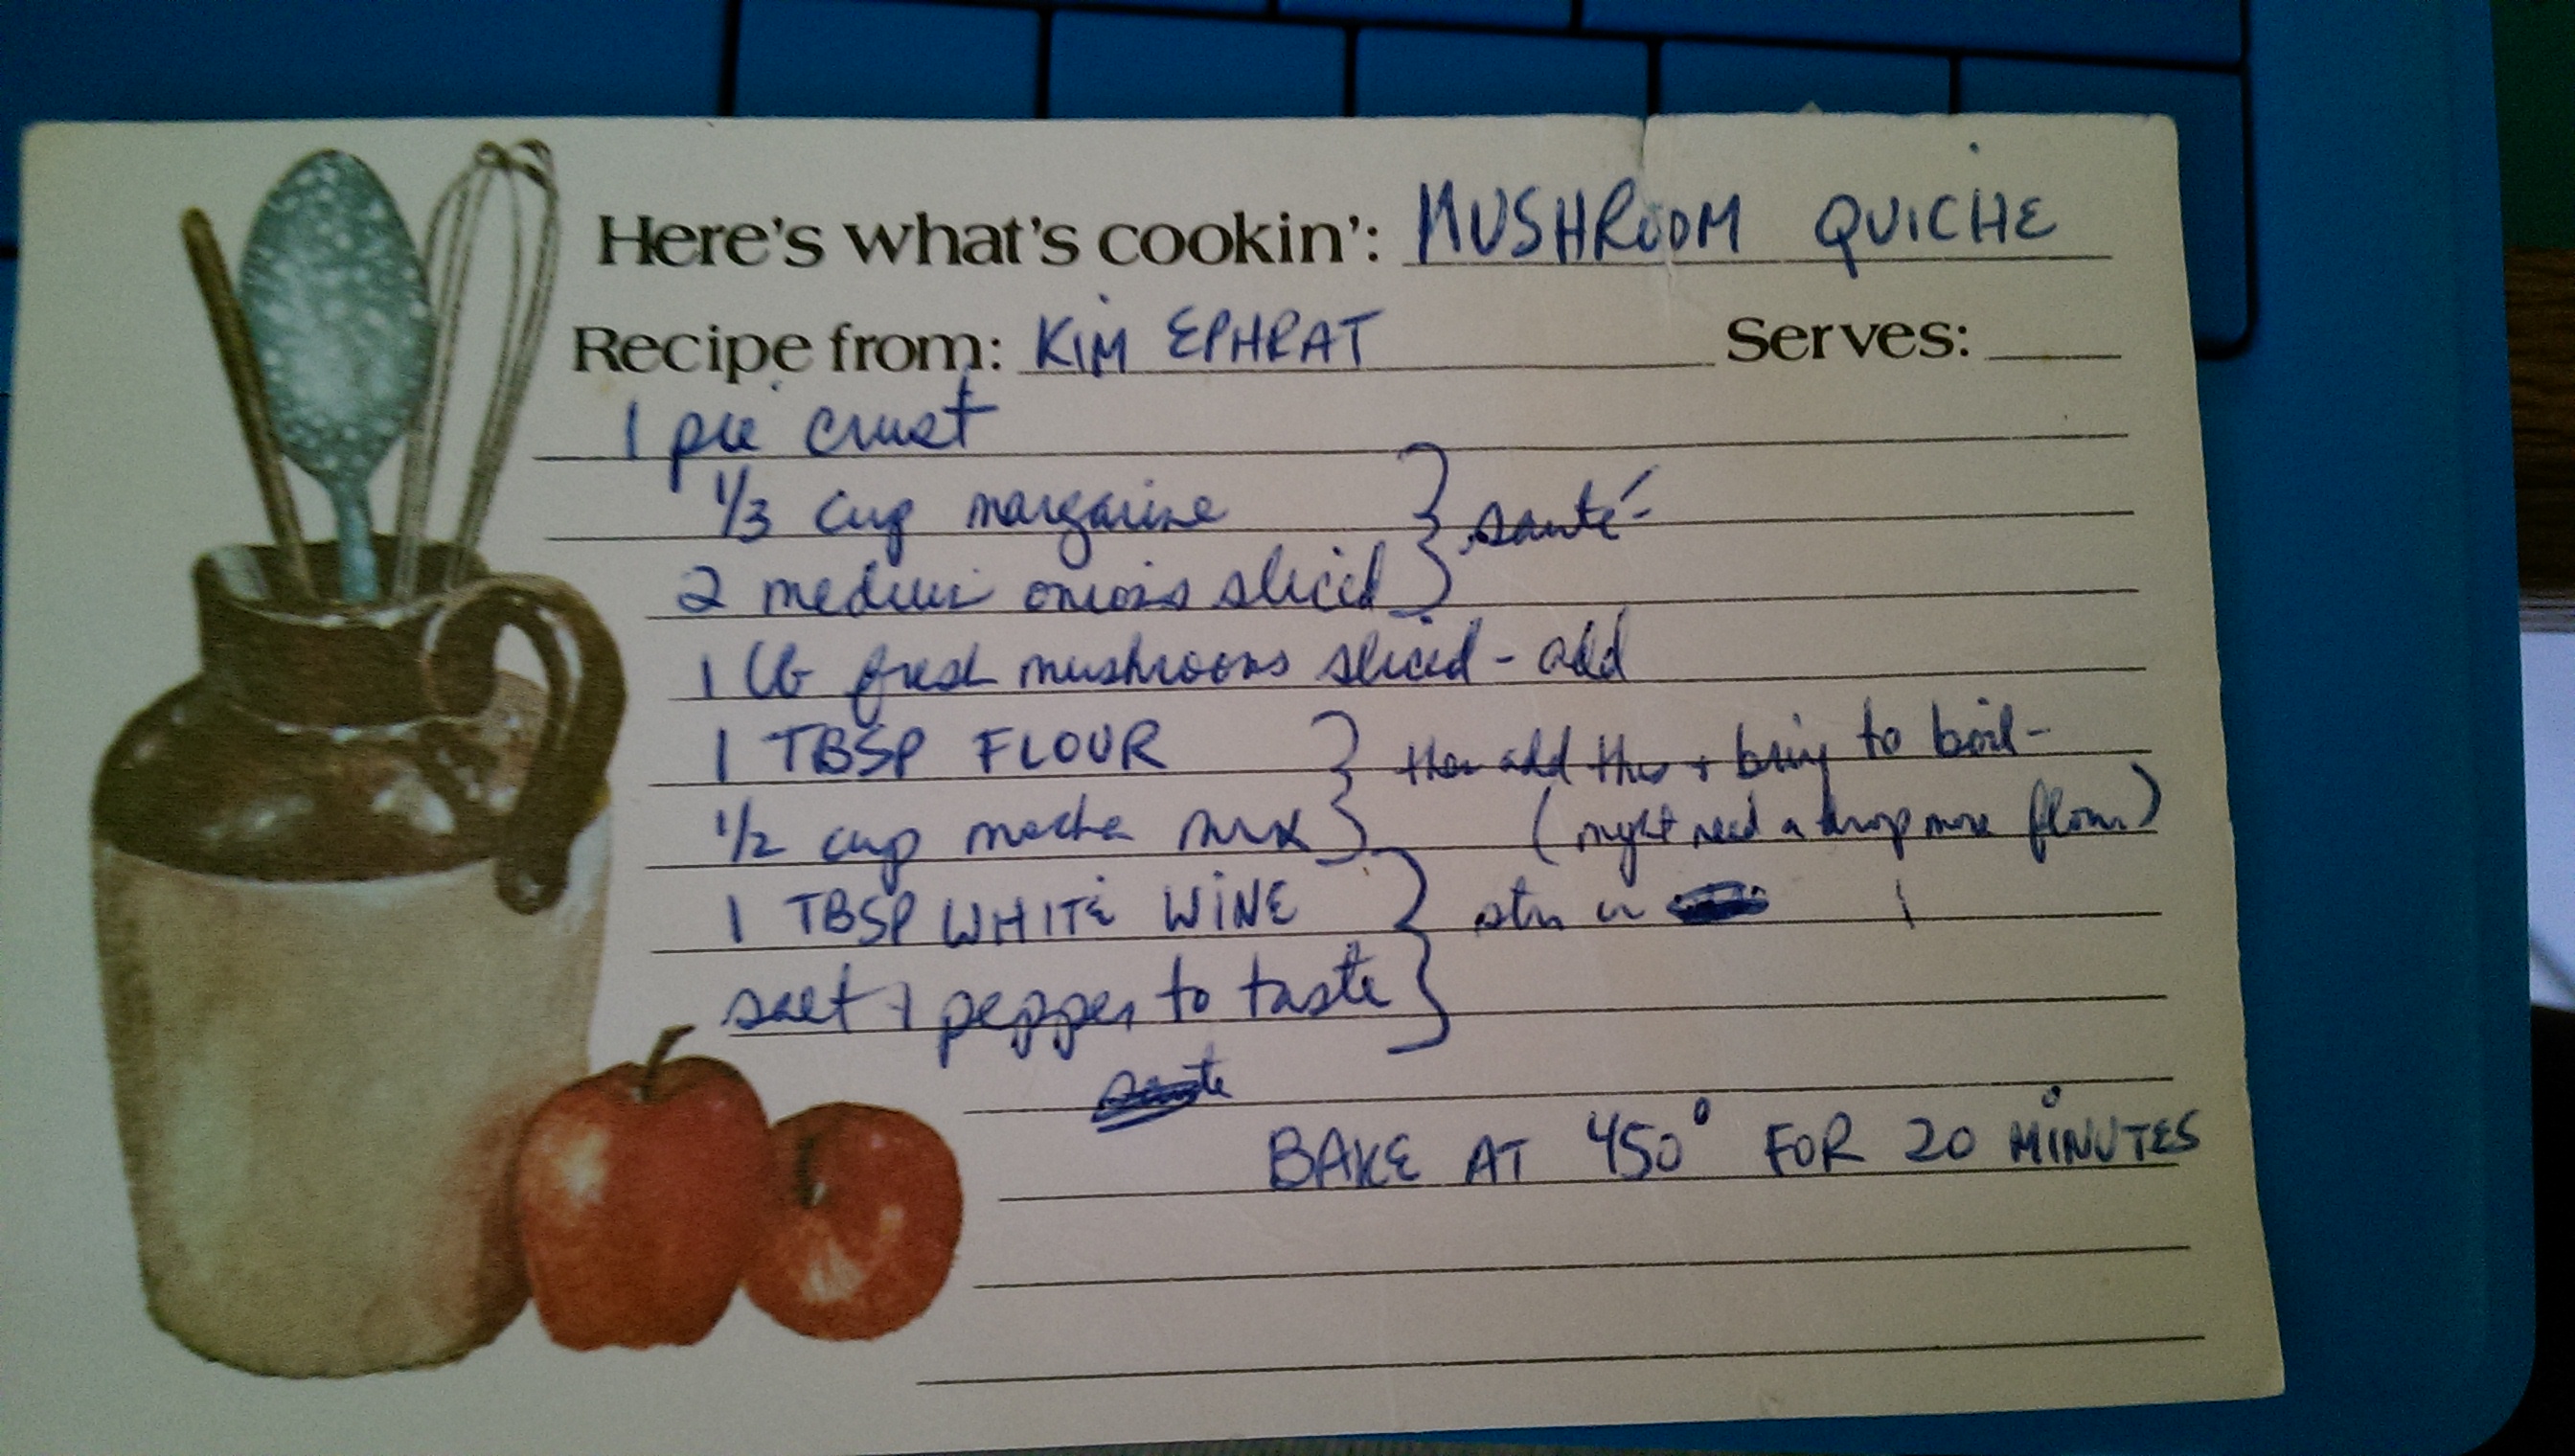 Here's what's cookin': MUSHROOM QUICHE
Recipe from: KIM EPHRAT Serves:
1 pie crust
1/3 cup margarine
2 medium onions sliced } sauté
1 lb fresh mushrooms sliced - add
1 TBSP FLOUR } then add this + bring to boil -
1/2 cup mocha mix (might need a drop more flour)
1 TBSP WHITE WINE } stir in
salt + pepper to taste
saute
BAKE AT 450° FOR 20 MINUTES